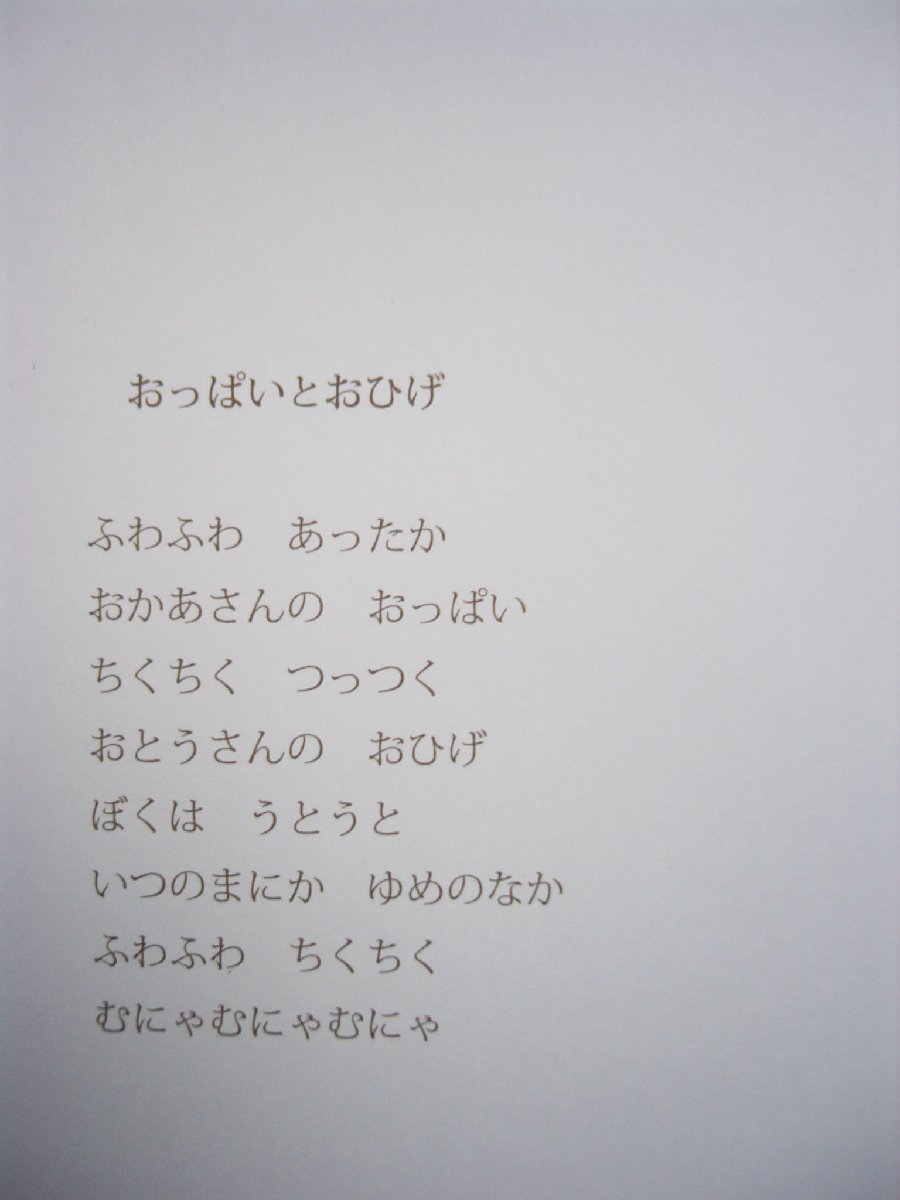 おっぱいとおひげ
ふわふわ　あったか
おかあさんの　おっぱい
ちくちく　つっつく
おとうさんの　おひげ
ぼくは　うとうと
いつのまにか　ゆめのなか
ふわふわ　ちくちく
むにゃむにゃむにゃ